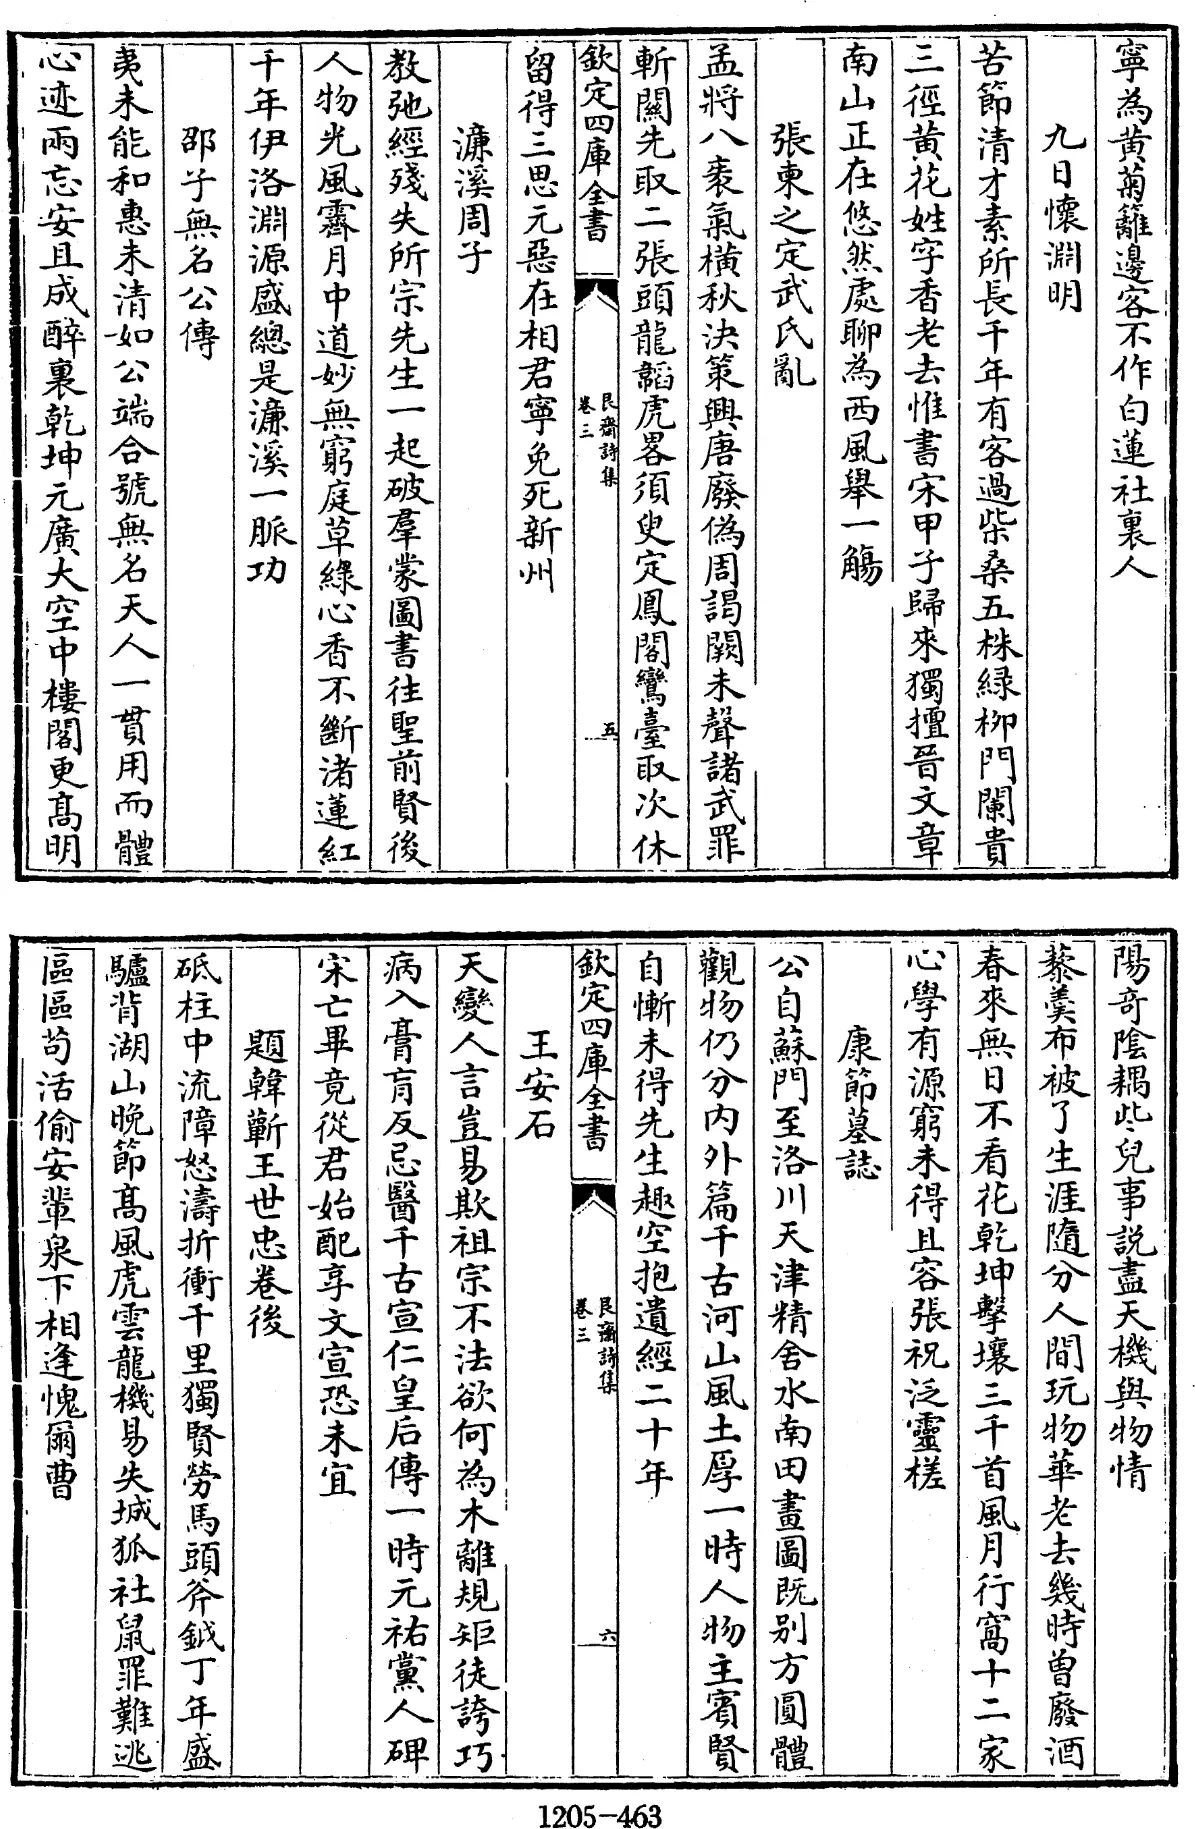 寧為黄菊籬邊客不作白蓮社裏人
九日懷淵明
苦節清才素所長千年有客過柴桑五株緑栁門闌貴
三徑黄花姓字香老去惟書宋甲子歸來獨擅晉文章
南山正在悠然處聊為西風舉一觴
張柬之定武氏亂
孟將八袠氣横秋決策興唐廢偽周謁闕未聲諸武罪
斬關先取二張頭龍韜虎畧須臾定鳳閣鸞臺取次休
欽定四庫全書
艮齋詩集
卷三
五
留得三思元惡在相君寧免死新州
濂溪周子
教弛經殘失所宗先生一起破羣蒙圖書往聖前賢後
人物光風霽月中道妙無窮庭草緑心香不斷渚蓮紅
千年伊洛淵源盛總是濂溪一脈功
邵子無名公傳
夷未能和惠未清如公端合號無名天人一貫用而體
心迹兩忘安且成醉裏乾坤元廣大空中樓閣更髙明
陽奇陰耦些兒事説盡天機與物情
藜羹布被了生涯隨分人間玩物華老去幾時曽廢酒
春來無日不看花乾坤擊壤三千首風月行窩十二家
心學有源窮未得且容張祝泛靈槎
康節墓誌
公自蘇門至洛川天津精舍水南田畫圖既别方圓體
觀物仍分内外篇千古河山風土厚一時人物主賓賢
自慚未得先生趣空抱遺經二十年
欽定四庫全書
艮齋詩集
卷三
六
王安石
天變人言豈易欺祖宗不法欲何為木離規矩徒誇巧
病入膏肓反忌醫千古宣仁皇后傳一時元祐黨人碑
宋亡畢竟從君始配享文宣恐未宜
題韓蘄王世忠卷後
砥柱中流障怒濤折衝千里獨賢勞馬頭斧鉞丁年盛
驢背湖山晩節髙風虎雲龍機易失城狐社鼠罪難逃
區區苟活偷安輩泉下相逢愧爾曹
1205-463